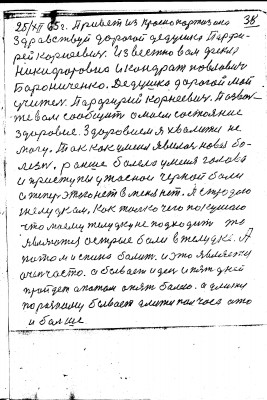 25/XII 65г. Привет из Краснопартизана 38
Здравствуй дорогой дедушка Парфи-
рей Корнаевич. Известно вам зятья
Никидоровна и Кондрат павлович
Парониченко. Дедушка дорогой мой
учител. Парфирий корневич. Позвол-
те вам сообщит о маем состояние
здоровие. Здоровием я хвалити не
могу. Так как у меня явилась новая бо-
лезн. раньше болела у меня голова
и приступы ужасной черной боли
а типер этого нет в меня нет. Я страдаю
желудкам, как только чего покушаю
что маему желудку не подходит то
являются острые боли в желудке. А
потом и спина болит. и это являетця
очн часто. а бывает и ден и пят дней
пройдет а патом опят болею. а длитця
по разнаму бывает длитця пол часа а то
и больше